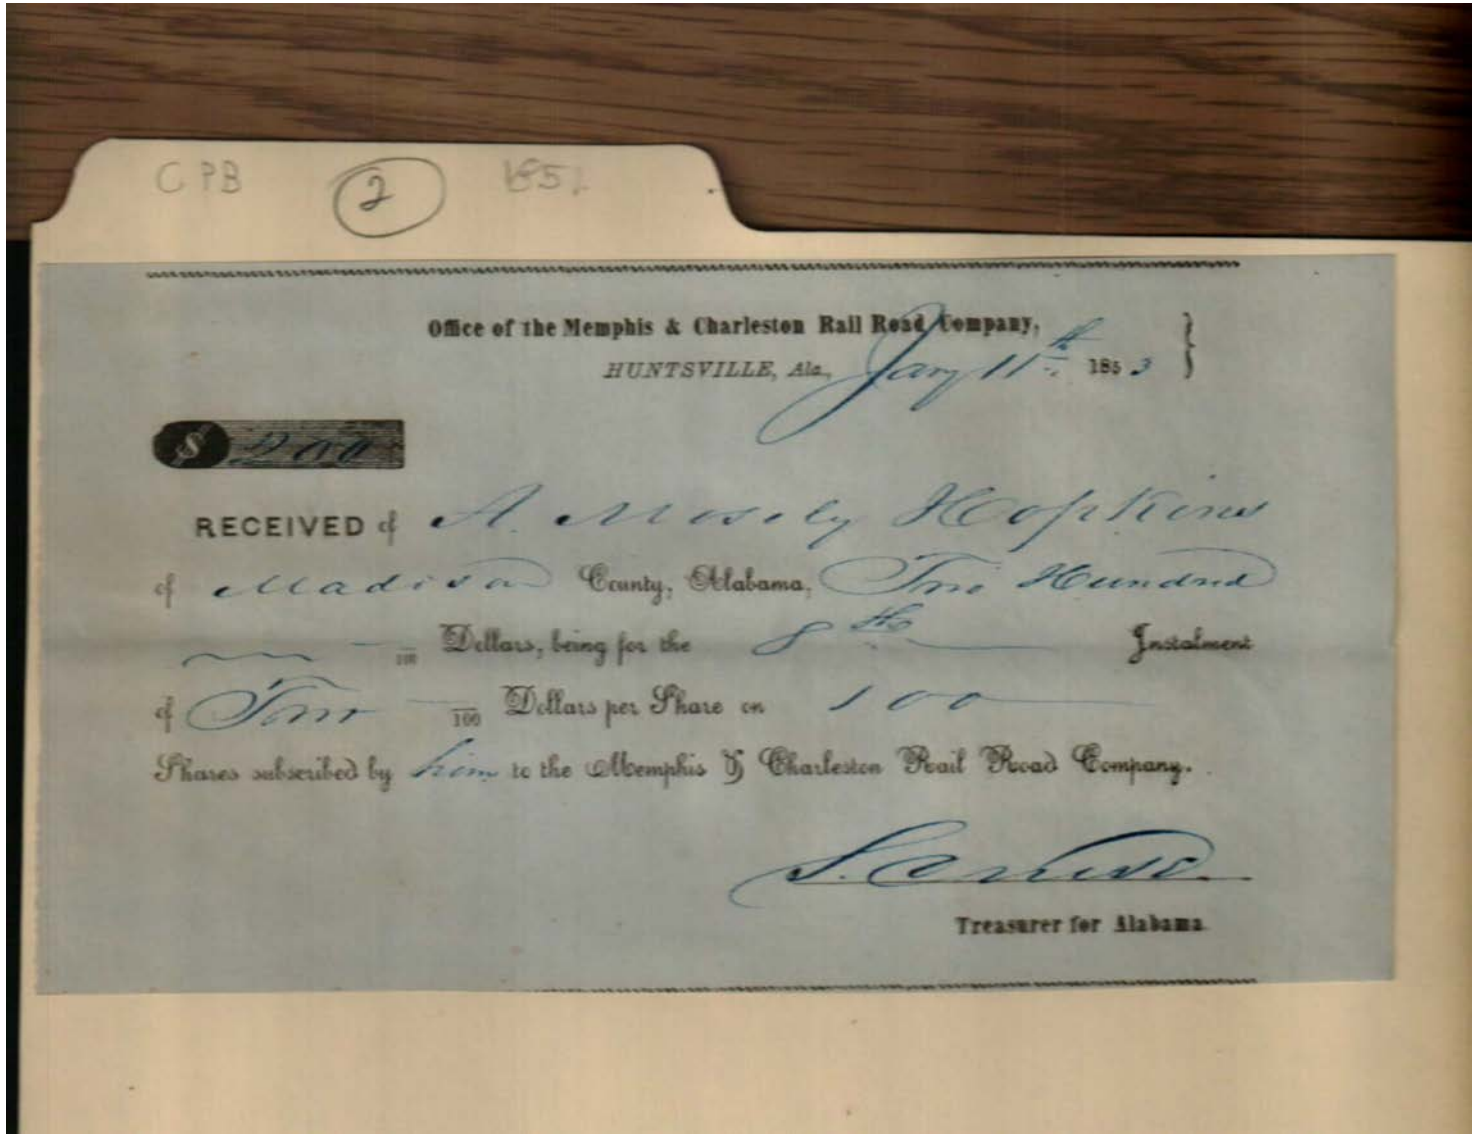 CPB 2 1851
Office of the Memphis & Charleston Rail Road Company,
HUNTSVILLE, Ala., Jany 11th 1853
$ 200
RECEIVED of A. Mosely Hopkins
of Madison County, Alabama, Two Hundred
/100 Dollars, being for the 8th Instalment
of Two /100 Dollars per Share on 100
Shares subscribed by him to the Memphis & Charleston Rail Road Company.
Treasurer for Alabama